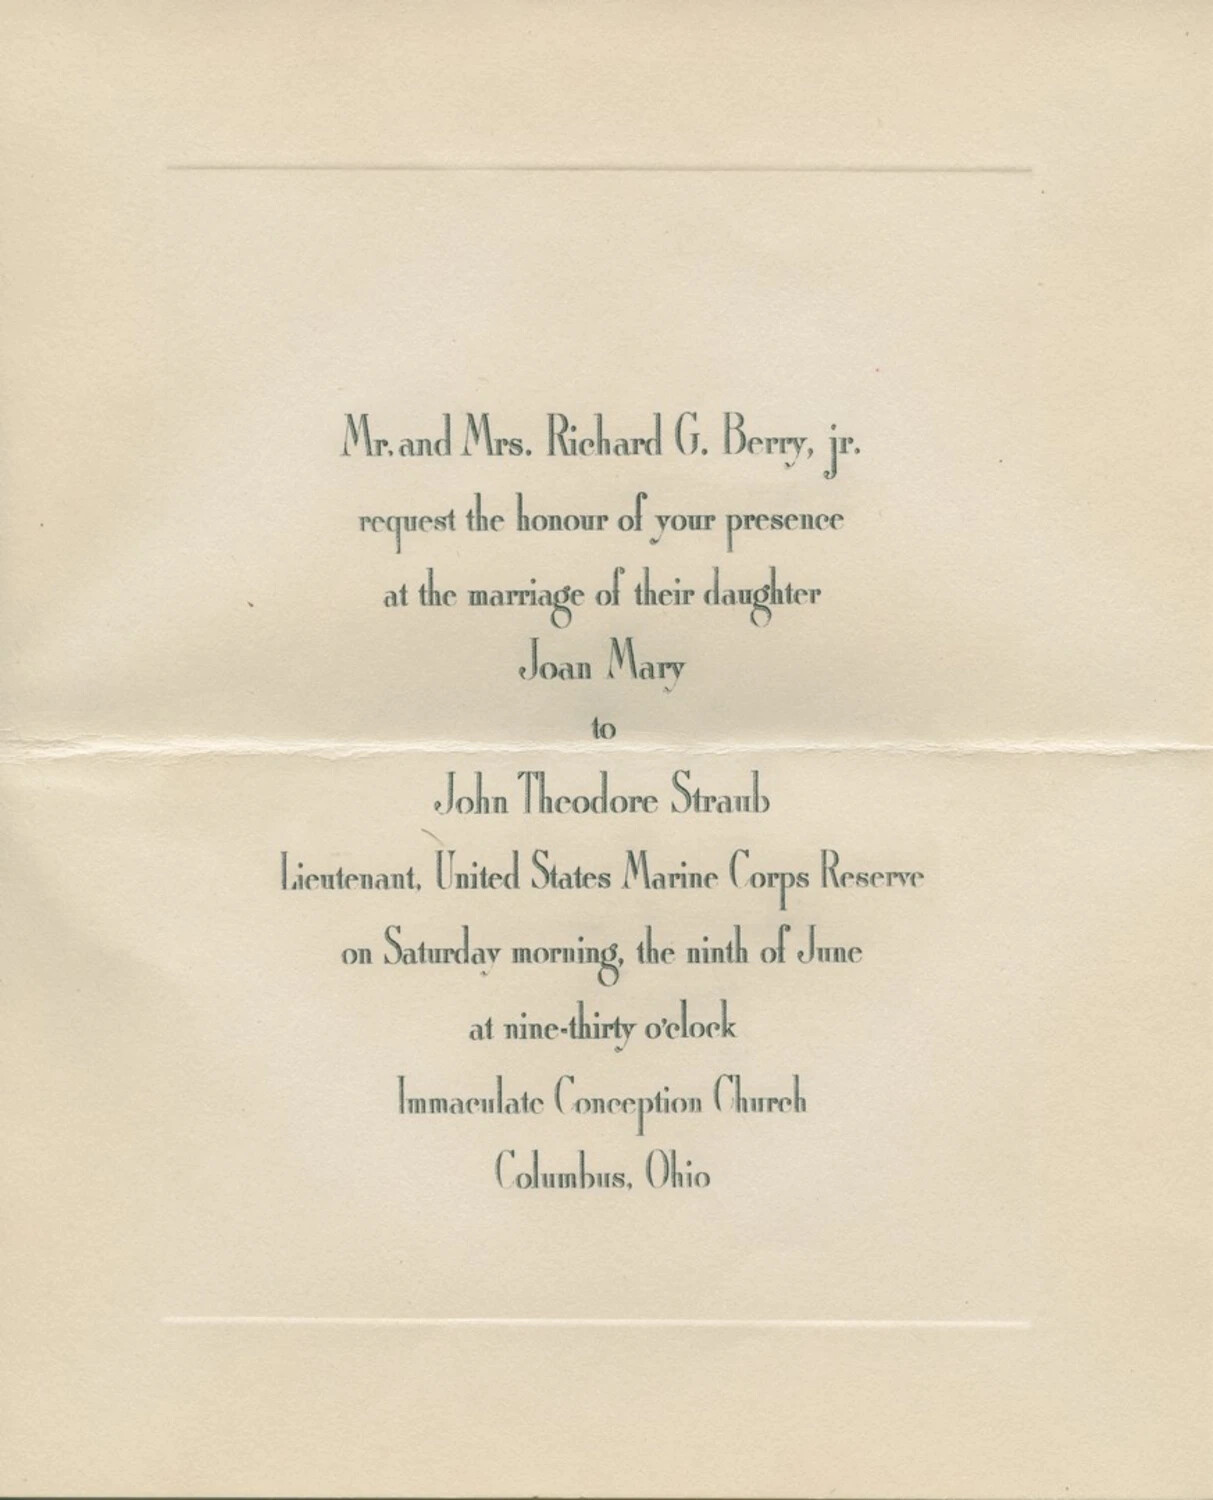 Mr. and Mrs. Richard G. Berry, jr.
request the honour of your presence
at the marriage of their daughter
Joan Mary
to
John Theodore Straub
Lieutenant, United States Marine Corps Reserve
on Saturday morning, the ninth of June
at nine-thirty o'clock
Immaculate Conception Church
Columbus, Ohio